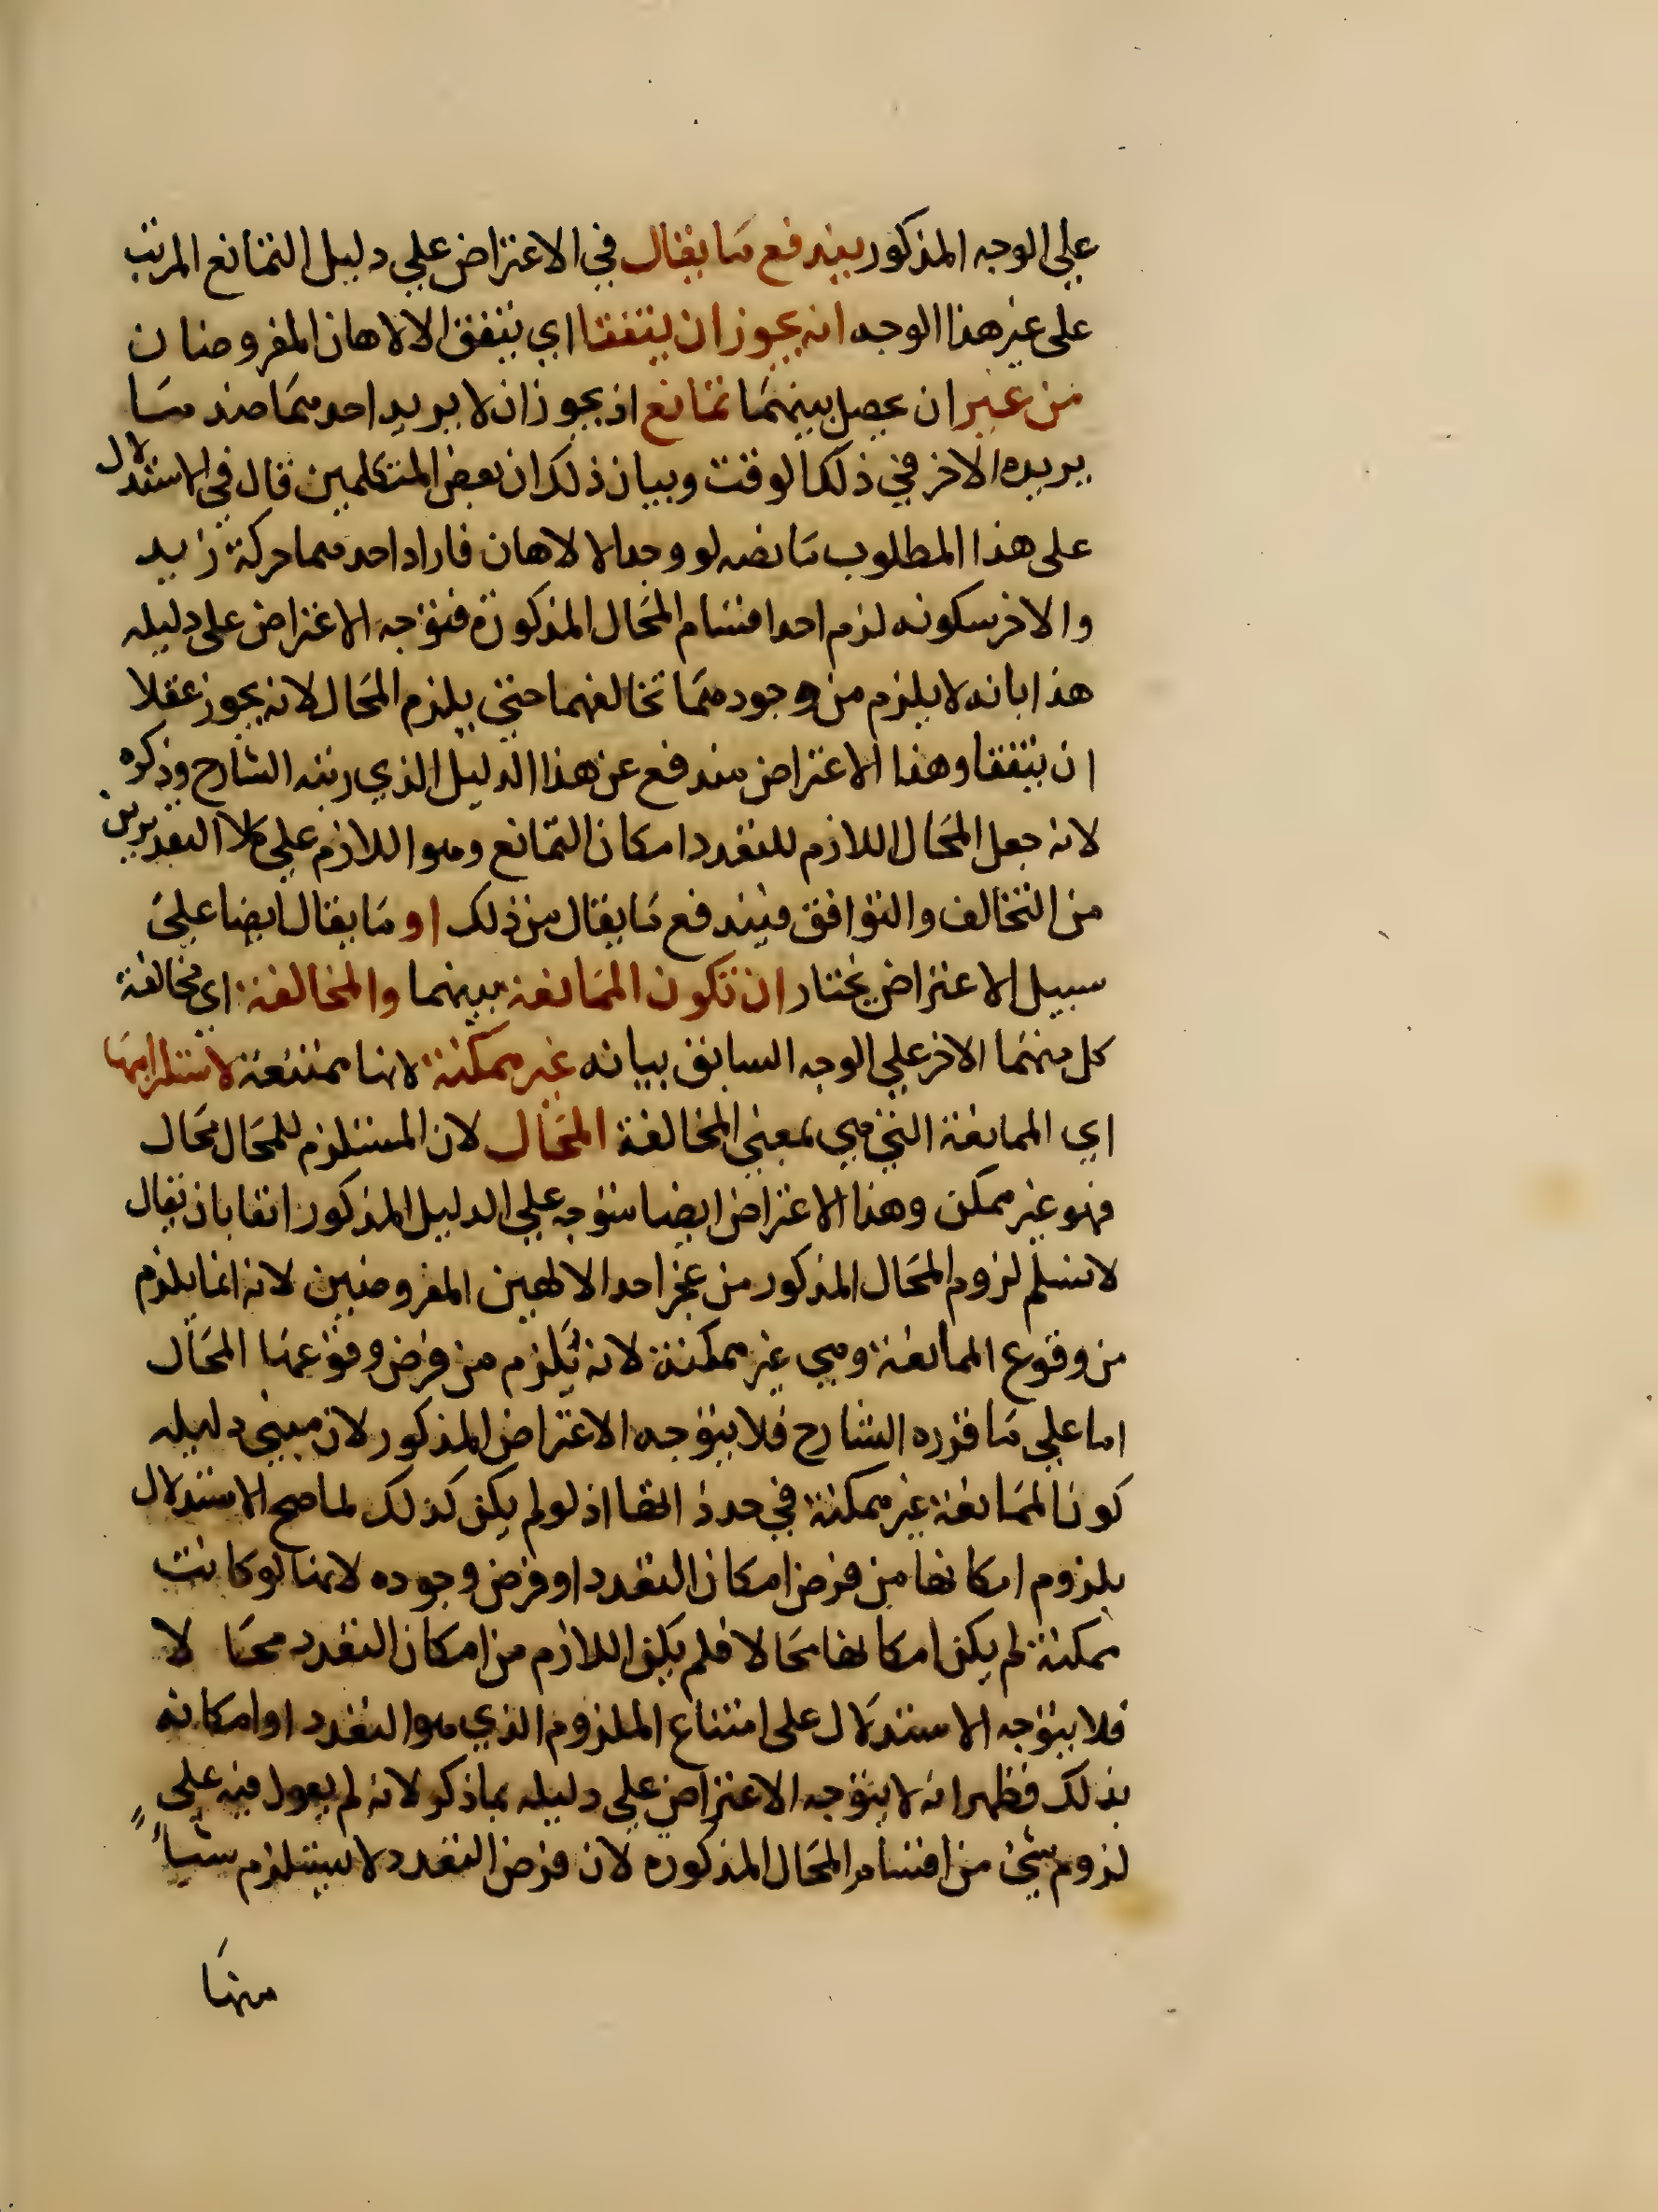 علي الوجه المذكور يندفع ما يقال في الاعتراض علي دليل التمانع المرتب
على غير هذا الوجه انه يجوز ان يتفقا اي يتفق الالاهان المفروضان
من غير ان يحصل بينهما تمانع اذ يجوز ان لا يريد احدهما ضد ما
يريده الاخر في ذلك الوقت وبيان ذلك ان بعض المتكلمين قال في الاستدلال
على هذا المطلوب ما نصه لو وجد الالاهان فاراد احدهما حركة زيد
والاخر سكونه لزم احد اقسام المحال المذكورة فتوجه الاعتراض على دليله
هذا بانه لا يلزم من وجودهما تخالفهما حتي يلزم المحال لانه يجوز عقلا
ان يتفقا وهذا الاعتراض مندفع عن هذا الدليل الذي رتبه الشارح وذكره
لانه جعل المحال اللازم للتعدد امكان التمانع وهو اللازم علي كلا التقديرين
من التخالف والتوافق فيندفع ما يقال من ذلك او ما يقال ايضا علي
سبيل الاعتراض يختار ان تكون الممانعة بينهما والمخالفة اي مخالفة
كل منهما الاخر علي الوجه السابق بيانه غير ممكنة لانها ممتنعة لاستلزامها
اي الممانعة التي هي بمعني المخالفة المحال لان المستلزم للمحال محال
فهو غير ممكن وهذا الاعتراض ايضا متوجه علي الدليل المذكور انفا بان يقال
لا نسلم لزوم المحال المذكور من عجز احد الالهين المفروضين لانه انما يلزم
من وقوع الممانعة وهي غير ممكنة لانه يلزم من فرض وقوعها المحال
اما علي ما قرره الشارح فلا يتوجه الاعتراض المذكور لان مبني دليله
كون الممانعة غير ممكنة في حد ذاتها اذ لو لم يكن كذلك لما صح الاستدلال
بلزوم امكانها من فرض امكان التعدد او فرض وجوده لانها لو كانت
ممكنة لم يكن امكانها محالا فلم يكن اللازم من امكان التعدد محا لا
فلا يتوجه الاستدلال على امتناع الملزوم الذي هو التعدد او امكانه
بذلك فظهر انه لا يتوجه الاعتراض علي دليله بما ذكر لانه لم يعول فيه علي
لزوم شيئ من اقسام المحال المذكوره لان فرض التعدد لا يستلزم شيأ
منها